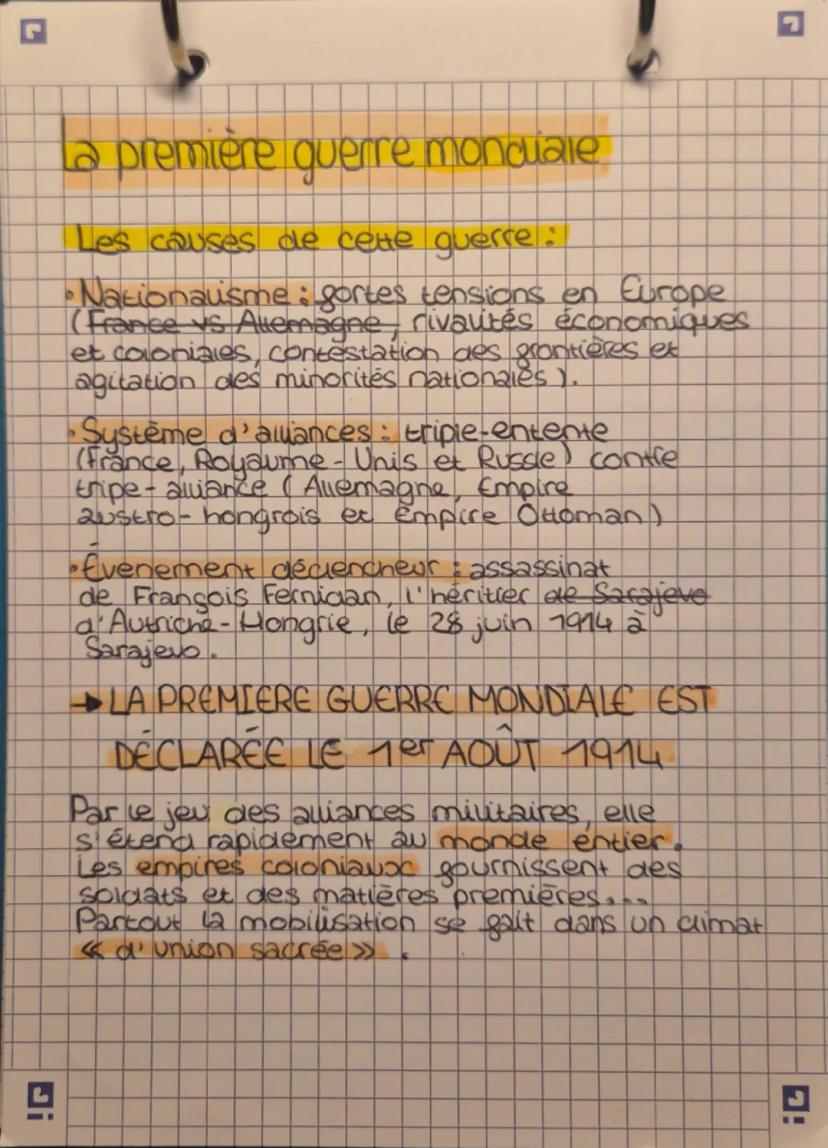 La première guerre mondiale
Les causes de cette guerre :
• Nationalisme : fortes tensions en Europe
(France vs Allemagne, rivalités économiques
et coloniales, contestation des frontières et
agitation des minorités nationales).
• Système d'alliances : triple-entente
(France, Royaume-Unis et Russie) contre
tripe-alliance (Allemagne, Empire
austro-hongrois et Empire Ottoman)
• Évenement déclencheur : assassinat
de François Fernidan, l'héritier de Sarajevo
d'Autriche-Hongrie, le 28 juin 1914 à
Sarajevo.
→ LA PREMIERE GUERRE MONDIALE EST
DÉCLARÉE LE 1er AOÛT 1914
Par le jeu des alliances militaires, elle
s'étend rapidement au monde entier.
Les empires coloniaux fournissent des
soldats et des matières premières....
Partout la mobilisation se fait dans un climat
« d'union sacrée » .